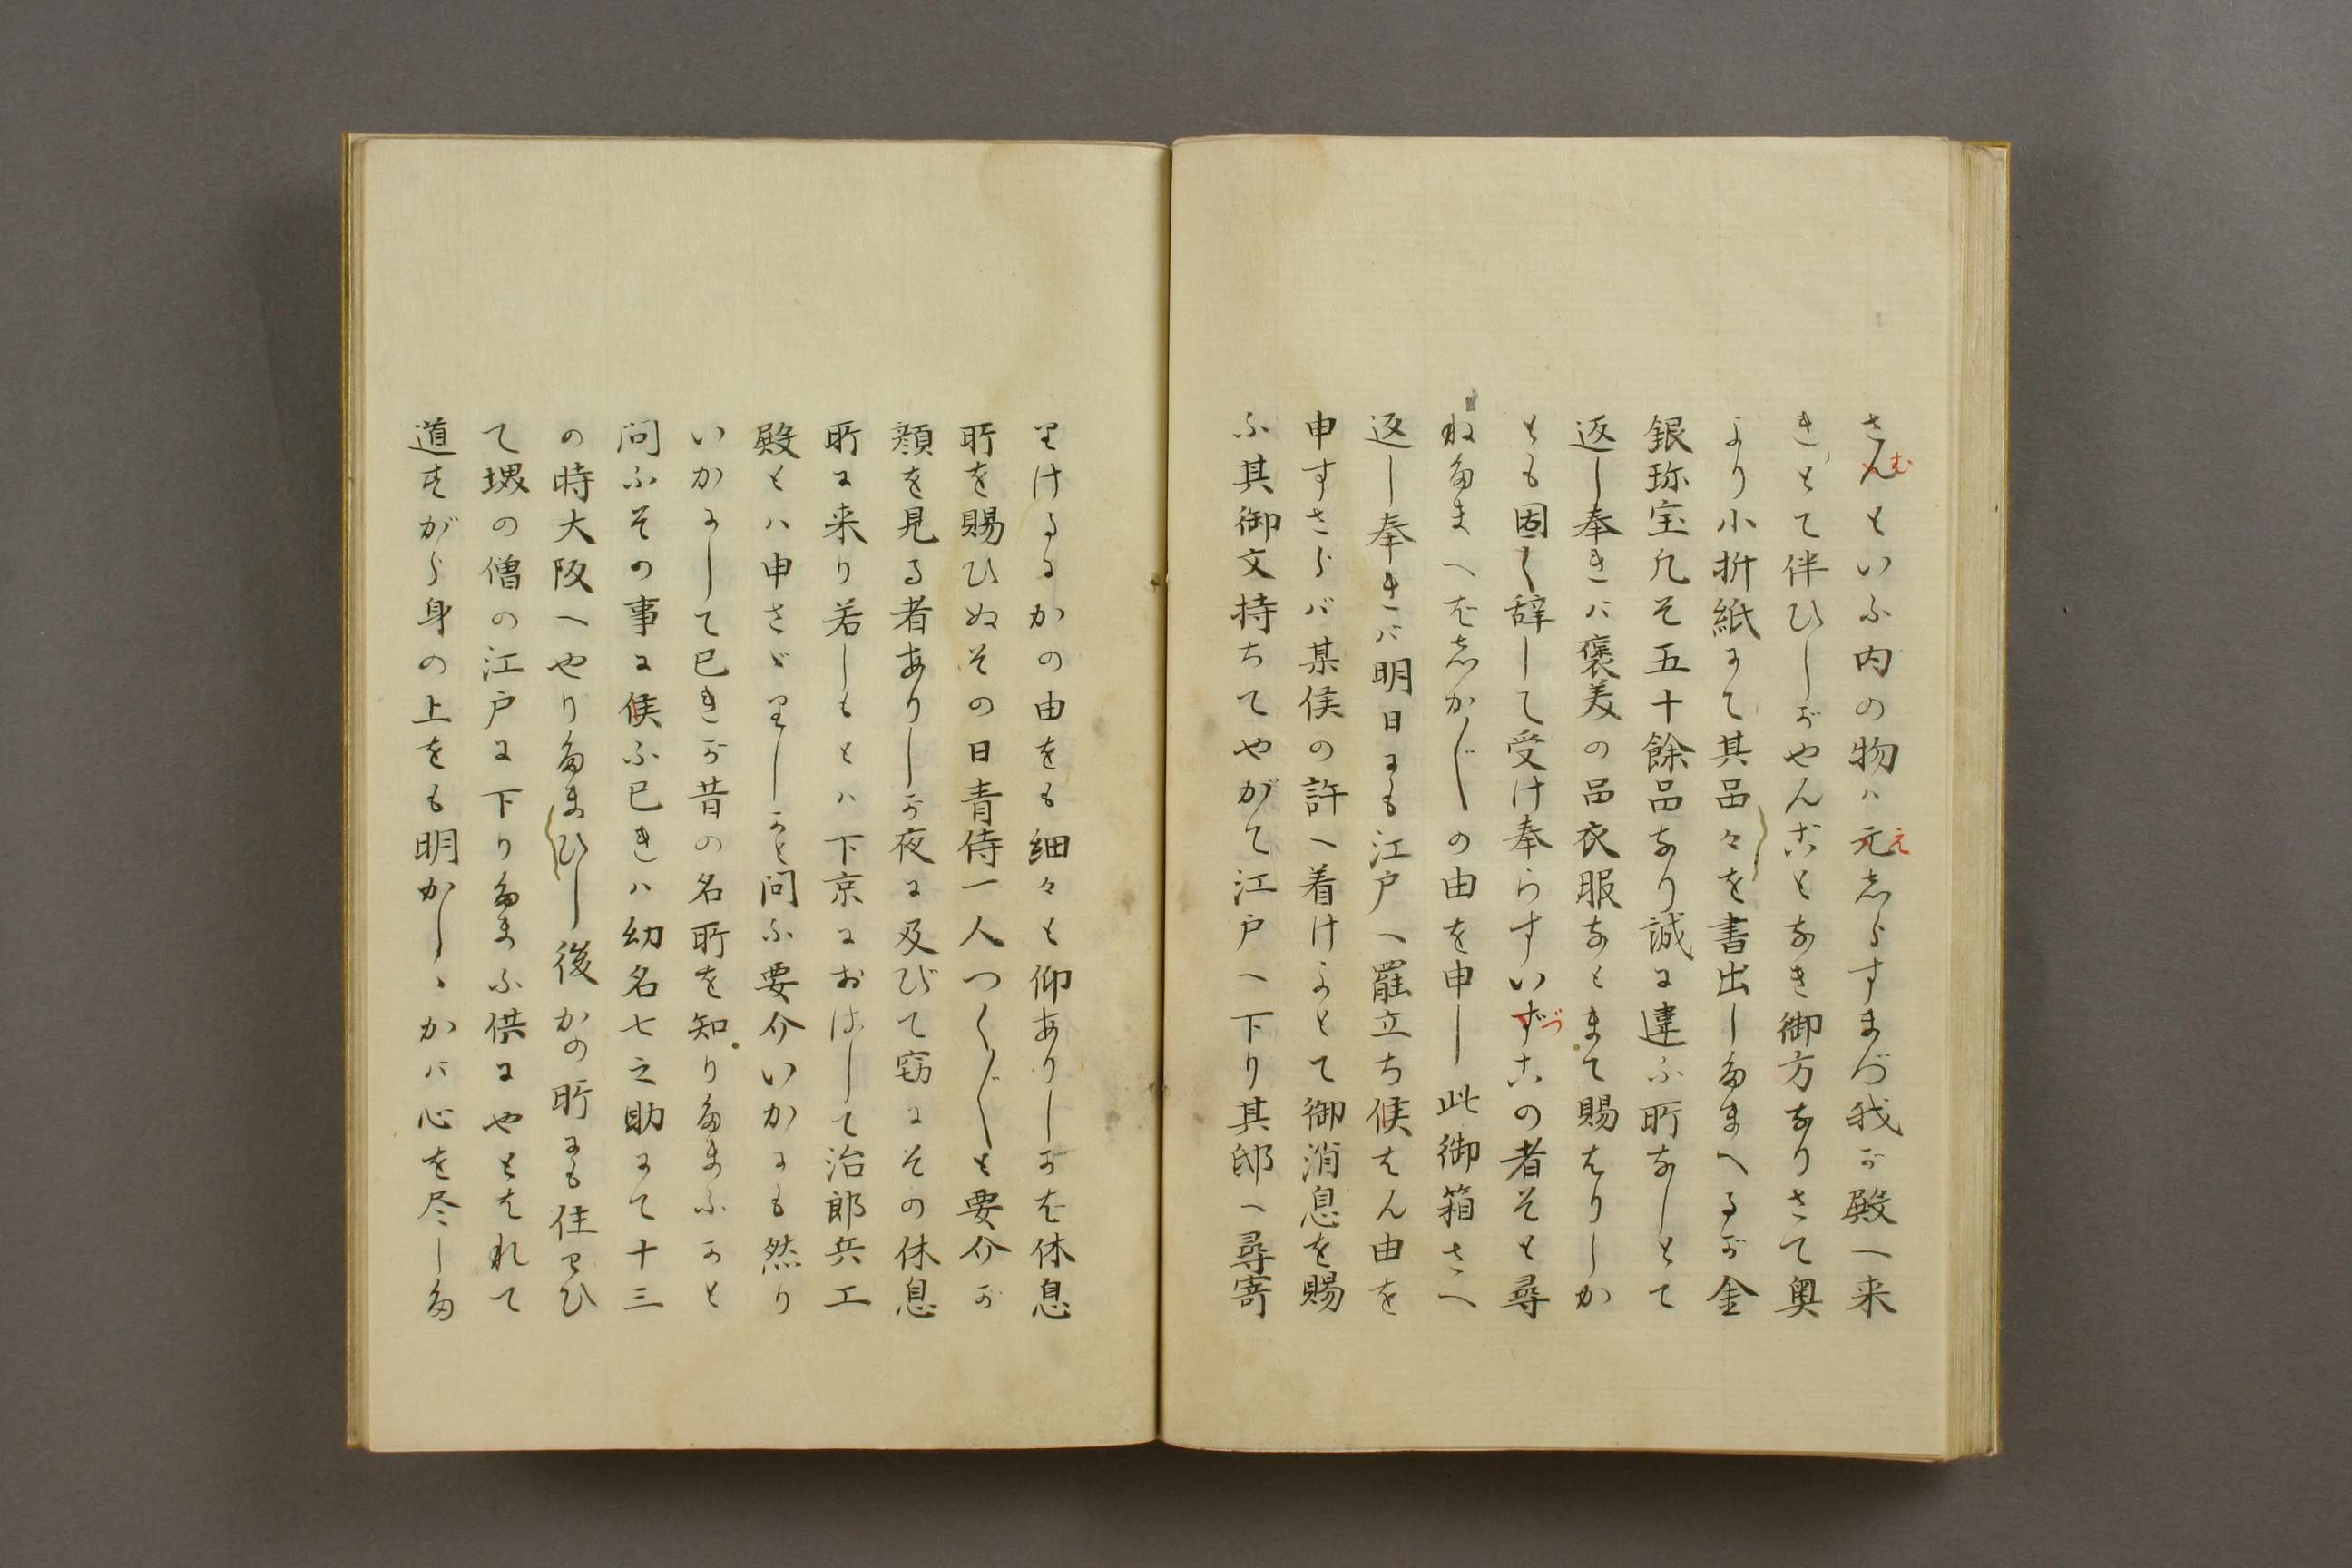 さんといふ内の物ハ元しらすまづ我が殿へ来
む
え
きとて伴ひしがやんことなき御方なりさて奥
より小折紙にて其品々を書出したまへるが金
銀珎宝凡そ五十餘品なり誠に違ふ所なしとて
返し奉きバ褒美の品衣服なとまて賜はりしか
とも固く辞して受け奉らすいずこの者そと尋
づ
ねたまへどしか〴〵の由を申し此御箱さへ
返し奉きバ明日にも江戸へ罷立ち候はん由を
申すさらバ某侯の許へ着けよとて御消息を賜
ふ其御文持ちてやがて江戸へ下り其邸へ尋寄
りけるにかの由をも細々も仰ありしかば休息
所を賜ひぬその日青侍一人つく〴〵と要介が
顔を見る者ありしが夜に及びて窃にその休息
所に来り若しもとハ下京におはして治郎兵工
殿とハ申さゞりしかと問ふ要介いかにも然り
いかにして已きが昔の名所を知りたまふかと
問ふその事に候ふ已きハ幼名七之助にて十三
の時大阪へやりたまひし後かの所にも住わひ
て堺の僧の江戸に下りたまふ供にやとはれて
道すがら身の上をも明かしゝかバ心を尽した